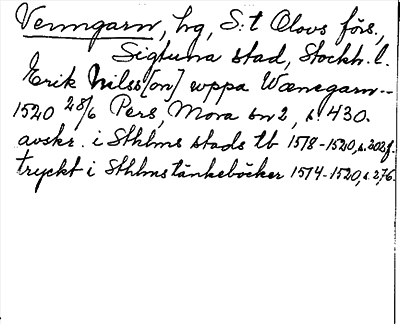 Venngarn, hg, S:t Olovs förs.,
Sigtuna stad, Stockh. l.
Erik Nilss[on] uppa Wænegarn--
1520 28/6 Pers, Mora bn 2, s. 430.
avskr. i Sthlms stads tb 1518-1520, s. 302f.
tryckt i Sthlms tänkeböcker 1514-1520, s. 276.